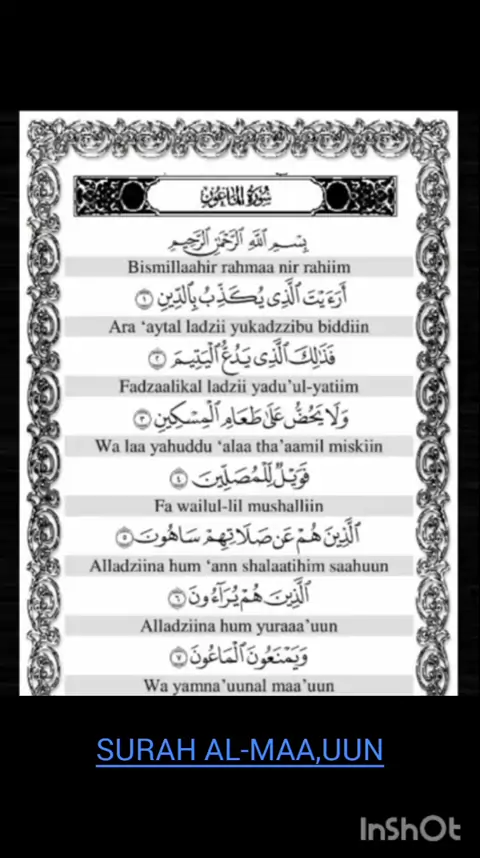 سُورَةُ الْمَاعُونِ
بِسْمِ اللَّهِ الرَّحْمَٰنِ الرَّحِيمِ
Bismillaahir rahmaa nir rahiim
أَرَءَيْتَ الَّذِي يُكَذِّبُ بِالدِّينِ ﴿١﴾
Ara ‘aytal ladzii yukadzzibu biddiin
فَذَٰلِكَ الَّذِي يَدُعُّ الْيَتِيمَ ﴿٢﴾
Fadzaalikal ladzii yadu’ul-yatiim
وَلَا يَحُضُّ عَلَىٰ طَعَامِ الْمِسْكِينِ ﴿٣﴾
Wa laa yahuddu ‘alaa tha’aamil miskiin
فَوَيْلٌ لِّلْمُصَلِّينَ ﴿٤﴾
Fa wailul-lil mushalliin
الَّذِينَ هُمْ عَن صَلَاتِهِمْ سَاهُونَ ﴿٥﴾
Alladziina hum ‘ann shalaatihim saahuun
الَّذِينَ هُمْ يُرَآءُونَ ﴿٦﴾
Alladziina hum yuraaa’uun
وَيَمْنَعُونَ الْمَاعُونَ ﴿٧﴾
Wa yamna’uunal maa’uun
SURAH AL-MAA,UUN
InShOt